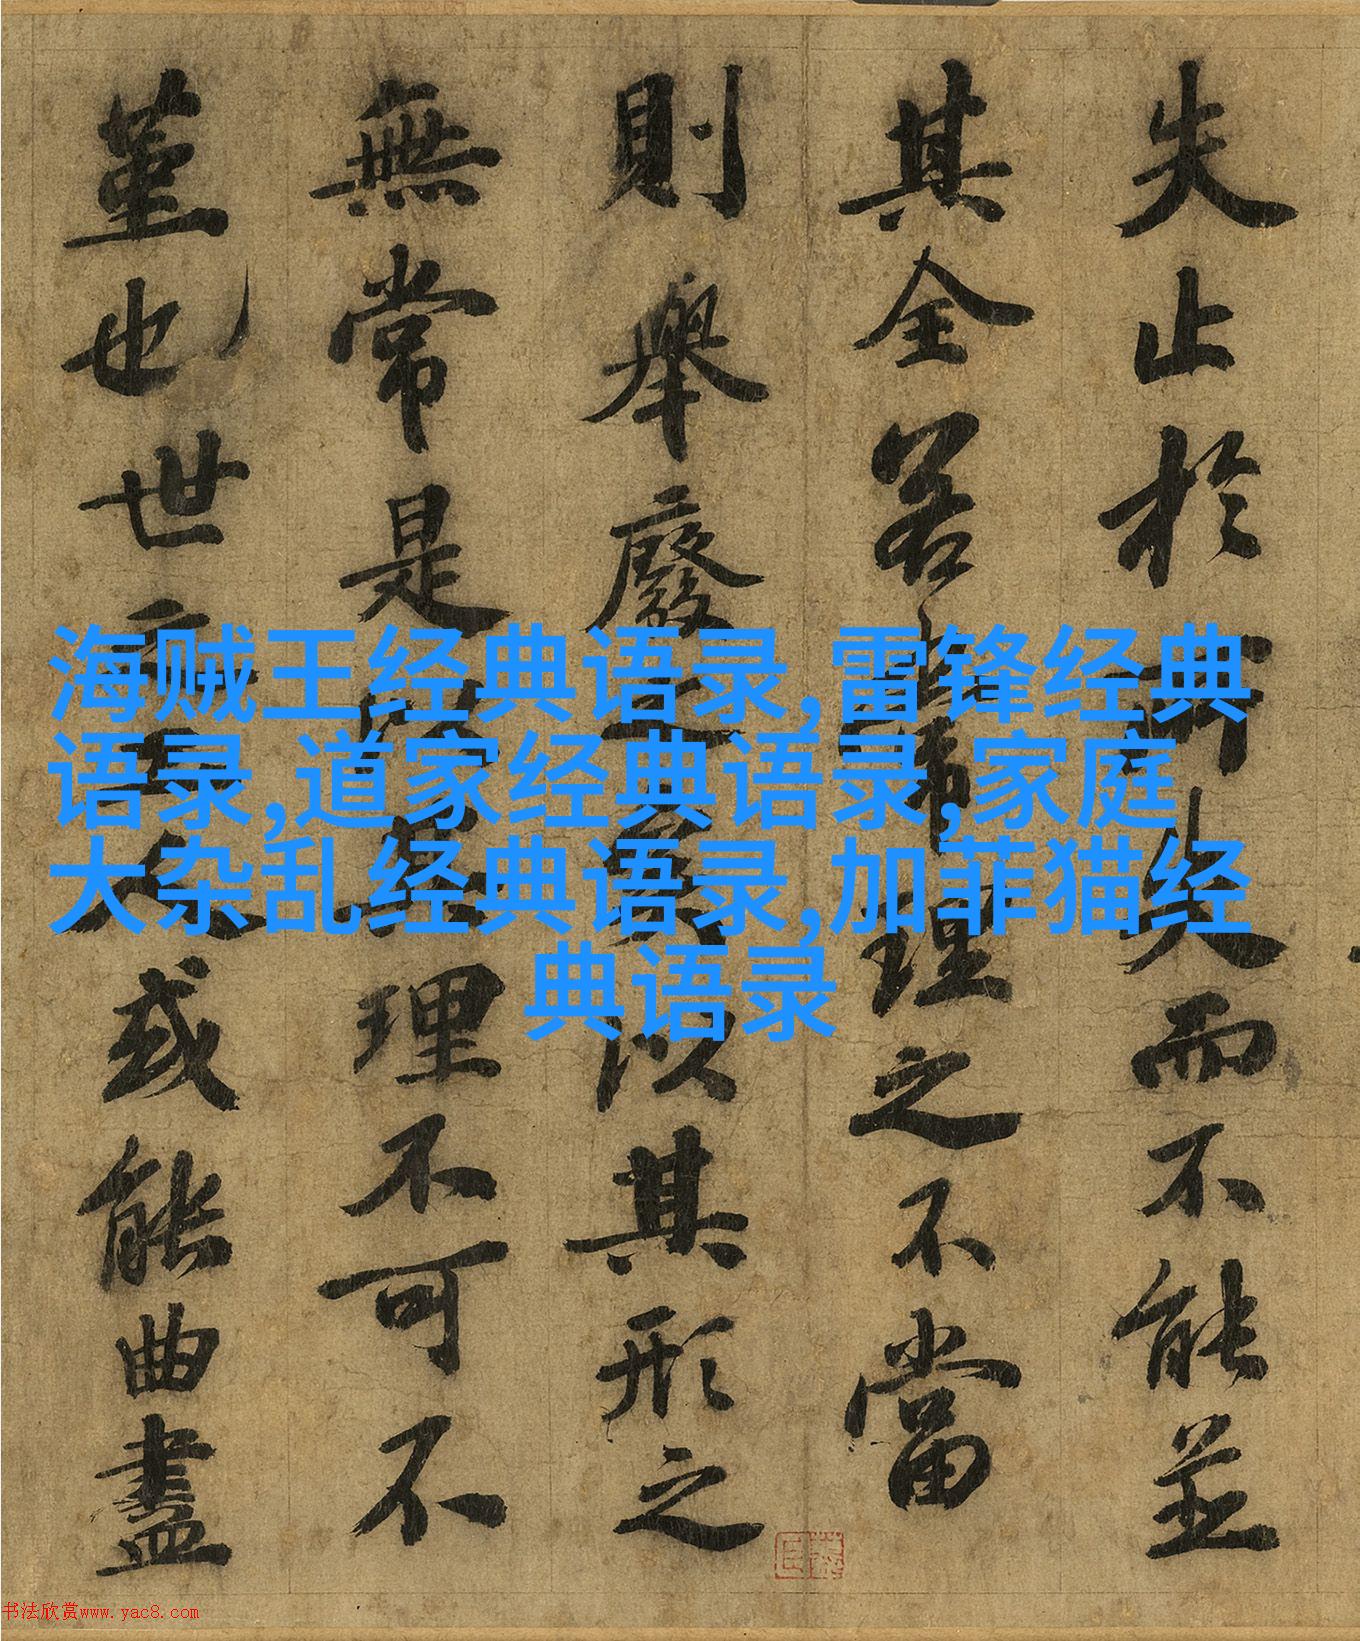 海贼王经典语录,雷锋经典
语录,道家经典语录,家庭
大杂乱经典语录,加菲猫经
典语录
失止於所失而不能並
其全若常理之不當
則舉廢之矣以其形之
無常是以其理不可不
堇也世之工人或能曲盡
书法欣赏www.yac8.com